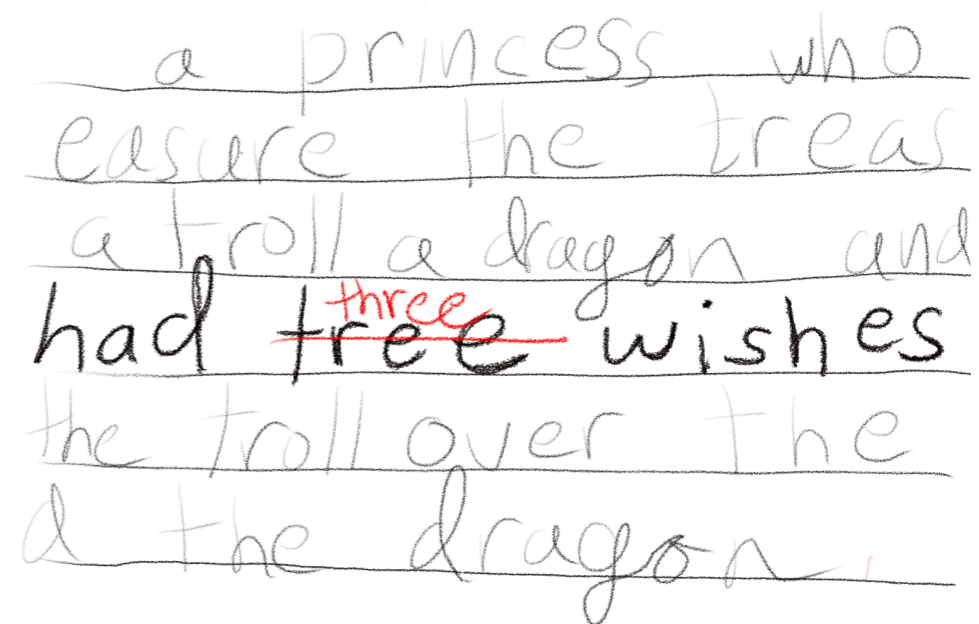 a princess who
easure the treas
a troll a dragon and
three
had tree wishes
the troll over the
d the dragon.